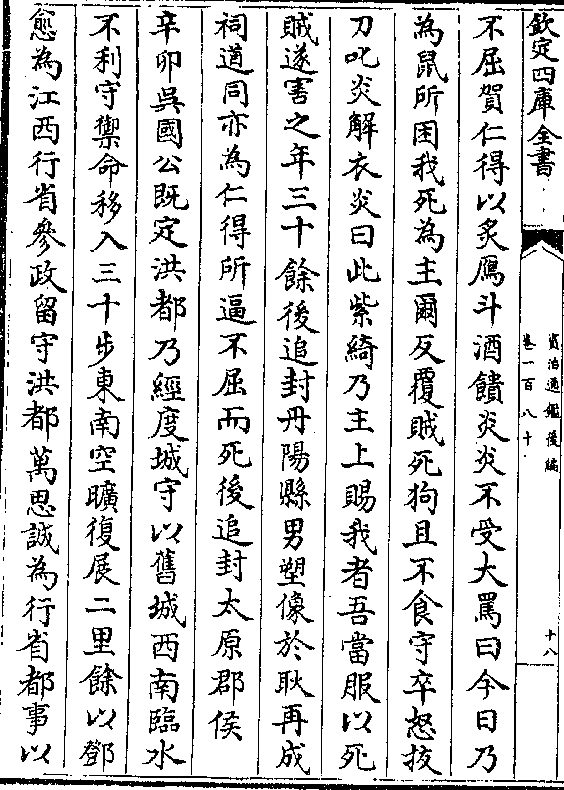 欽定四庫全書
資治通鑑後編
卷一百八十
十八
不屈賀仁得以炙鴈斗酒饋炎炎不受大罵曰今日乃
為鼠所困我死為主爾反覆賊死狗且不食守卒怒拔
刀叱炎解衣炎曰此紫綺乃主上賜我者吾當服以死
賊遂害之年三十餘後追封丹陽縣男塑像於耿再成
祠道同亦為仁得所逼不屈而死後追封太原郡侯
辛卯吳國公既定洪都乃經度城守以舊城西南臨水
不利守禦命移入三十步東南空曠復展二里餘以鄧
愈為江西行省參政留守洪都萬思誠為行省都事以